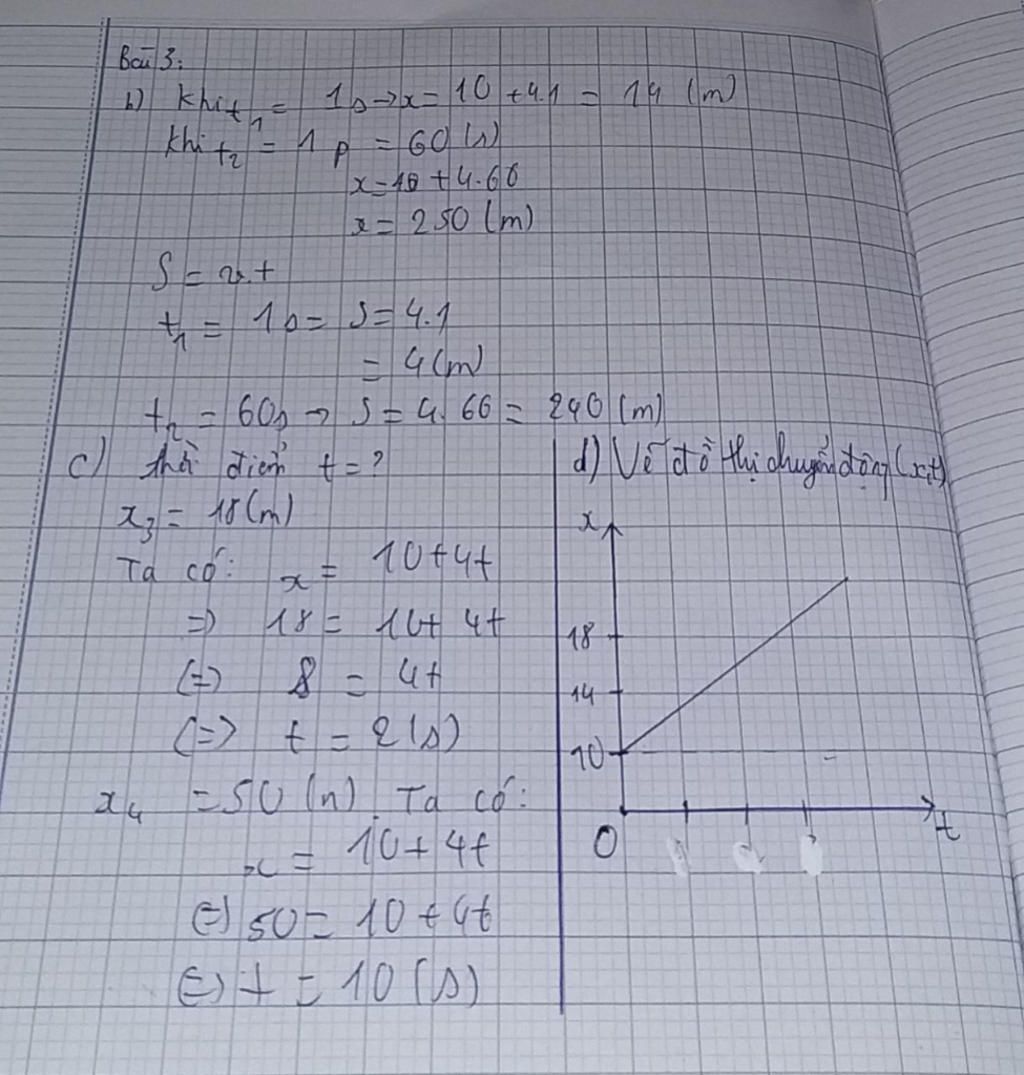 Bài 3:
b) Khi t₁ = 1s → x = 10 + 4.1 = 14 (m)
Khi t₂ = 1p = 60 (s)
x = 10 + 4.60
x = 250 (m)
S = v.t
t₁ = 1s = S = 4.1
= 4 (m)
t₂ = 60s → S = 4.60 = 240 (m)
c) thời điểm t = ?
x₃ = 18 (m)
Ta có: x = 10 + 4t
=> 18 = 10 + 4t
(=) 8 = 4t
(=> t = 2 (s)
x₄ = 50 (m) Ta có:
x = 10 + 4t
(=) 50 = 10 + 4t
(=) t = 10 (s)
d) Vẽ đồ thị chuyển động (x,t)
x
18
14
10
O
t